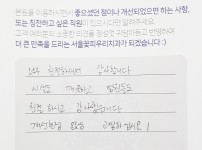 본원을 이용하시면서 좋으셨던 점이나 개선되었으면 하는 사항,
또는 칭찬하고 싶은 직원이 있으시다면 알려주세요.
고객 여러분의 소중한 의견을 정성껏 귀담아듣고 반영하여
더 큰 만족을 드리는 서울꽃피우리치과가 되겠습니다 :)
친절하셔서 감사합니다
시설도 깨끗하고
친절하고 감사합니다